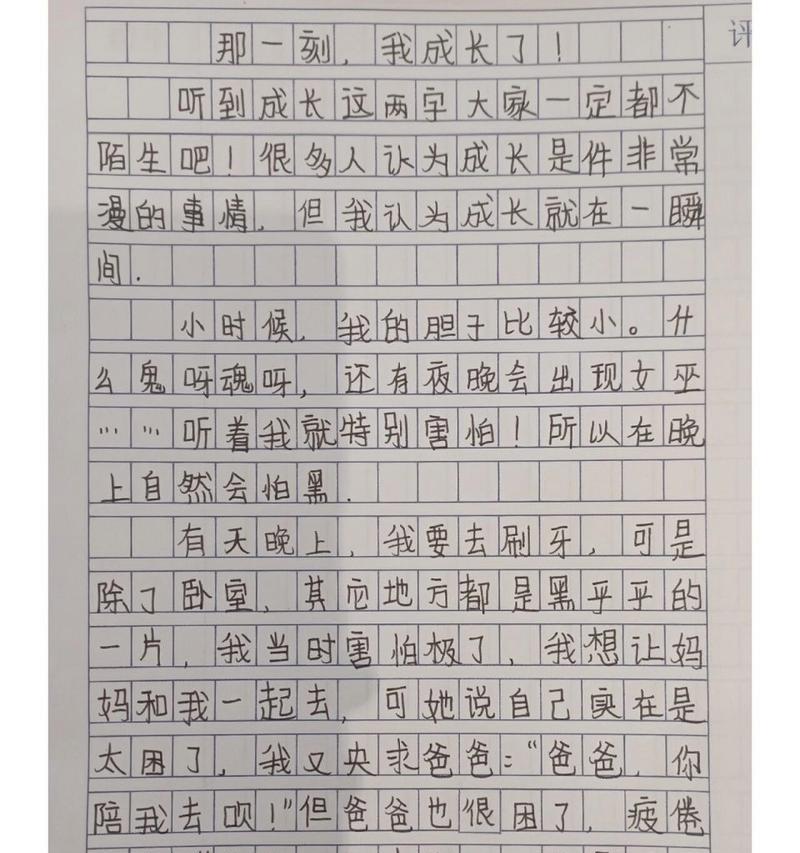 那一刻，我成长了！
评
听到成长这两字大家一定都不
陌生吧！很多人认为成长是件非常
漫的事情，但我认为成长就在一瞬
间.
小时候，我的胆子比较小。什
么鬼呀魂呀，还有夜晚会出现女巫
……听着我就特别害怕！所以在晚
上自然会怕黑.
有天晚上，我要去刷牙，可是
除了卧室，其它地方都是黑乎乎的
一片，我当时害怕极了，我想让妈
妈和我一起去，可她说自己实在是
太困了，我又央求爸爸：“爸爸，你
陪我去呗！”但爸爸也很困了，疲倦